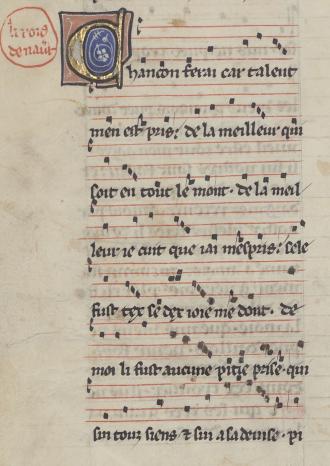 li rois
de nauť
Chancon ferai car talent
men est pris. de la meilleur qui
soit en tout le mont. de la meil
leur ie cuit que iai mespris. sele
fust tex se dex ioie me dont. de
moi li fust aucune pitie prise. qui
sui touz siens & sui a sa deuise. pi